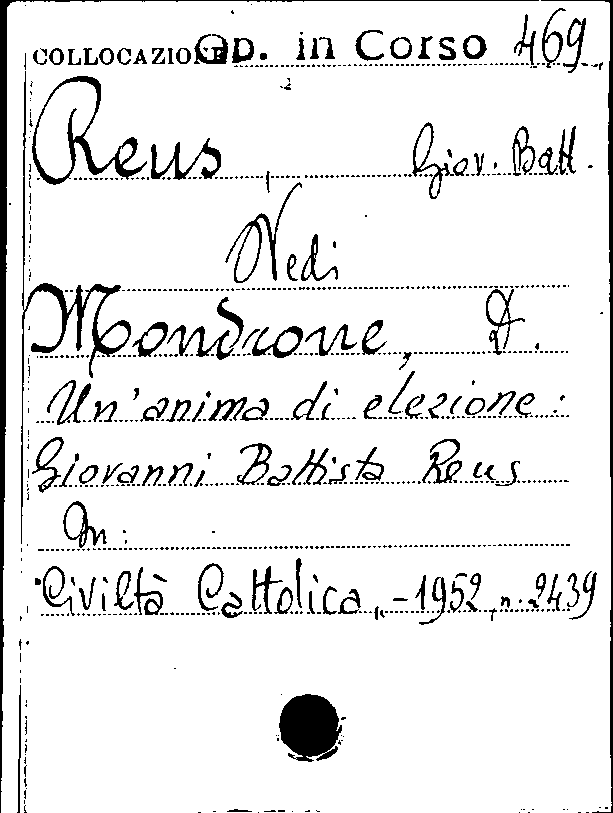 COLLOCAZIONE Op. in Corso 469
Reus, Giov. Batt.
Vedi
Mondrone, D.
Un'anima di elezione:
Giovanni Battista Reus
In:
Civiltà Cattolica, - 1952, n. 2439